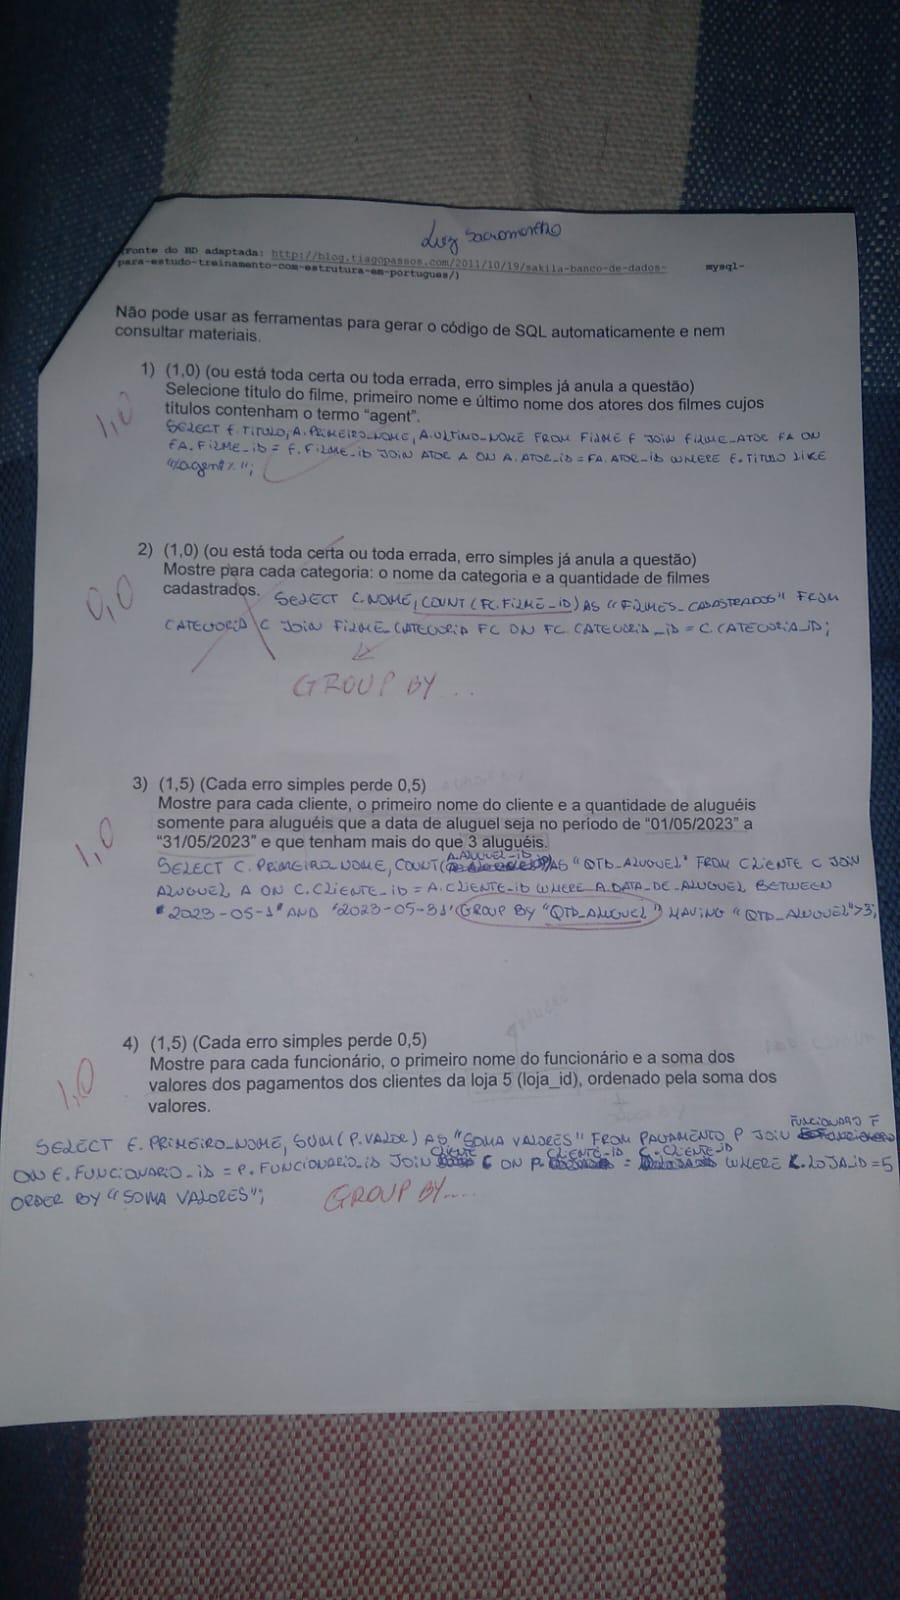 Luiz Sacramento
(Fonte do BD adaptada: http://blog.tiagopassos.com/2011/10/19/sakila-banco-de-dados- mysql-
para-estudo-treinamento-com-estrutura-em-portugues/)
Não pode usar as ferramentas para gerar o código de SQL automaticamente e nem
consultar materiais.
1) (1,0) (ou está toda certa ou toda errada, erro simples já anula a questão)
Selecione titulo do filme, primeiro nome e último nome dos atores dos filmes cujos
1,0
títulos contenham o termo “agent”.
SELECT F.TITULO, A.PRIMEIRO_NOME, A.ULTIMO_NOME FROM FILME F JOIN FILME_ATOR FA ON
FA.FILME_ID = F.FILME_ID JOIN ATOR A ON A.ATOR_ID = FA.ATOR_ID WHERE F.TITULO LIKE
"%agent%";
2) (1,0) (ou está toda certa ou toda errada, erro simples já anula a questão)
Mostre para cada categoria: o nome da categoria e a quantidade de filmes
0,0
cadastrados. SELECT C.NOME, COUNT(FC.FILME_ID) AS "FILMES_CADASTRADOS" FROM
CATEGORIA C JOIN FILME_CATEGORIA FC ON FC.CATEGORIA_ID = C.CATEGORIA_ID;
GROUP BY...
3) (1,5) (Cada erro simples perde 0,5)
Mostre para cada cliente, o primeiro nome do cliente e a quantidade de aluguéis
somente para aluguéis que a data de aluguel seja no período de “01/05/2023” a
1,0
“31/05/2023” e que tenham mais do que 3 aluguéis.
A.ALUGUEL_ID
SELECT C.PRIMEIRO_NOME, COUNT( ) AS "QTD_ALUGUEL" FROM CLIENTE C JOIN
ALUGUEL A ON C.CLIENTE_ID = A.CLIENTE_ID WHERE A.DATA_DE_ALUGUEL BETWEEN
'2023-05-1' AND '2023-05-31' GROUP BY "QTD_ALUGUEL" HAVING "QTD_ALUGUEL">3;
4) (1,5) (Cada erro simples perde 0,5)
Mostre para cada funcionário, o primeiro nome do funcionário e a soma dos
1,0
valores dos pagamentos dos clientes da loja 5 (loja_id), ordenado pela soma dos
valores.
FUNCIONARIO F
SELECT F.PRIMEIRO_NOME, SUM(P.VALOR) AS "SOMA VALORES" FROM PAGAMENTO P JOIN
CLIENTE CLIENTE_ID C.CLIENTE_ID
ON F.FUNCIONARIO_ID = P.FUNCIONARIO_ID JOIN C ON P. = WHERE C.LOJA_ID = 5
ORDER BY "SOMA VALORES";
GROUP BY....